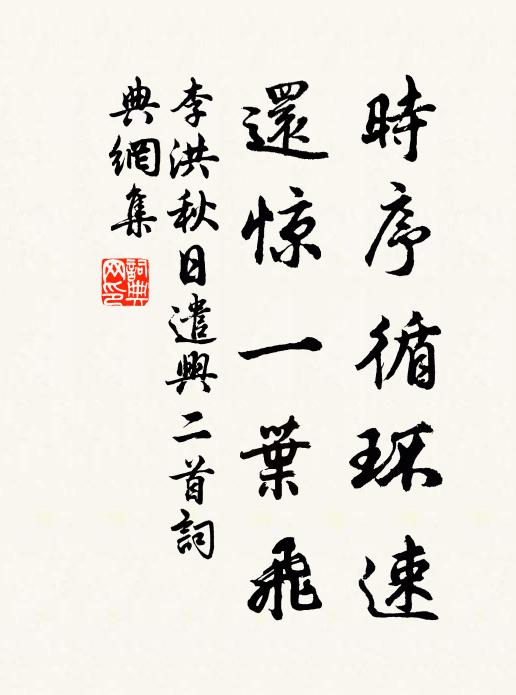 時序循环速
還惊一葉飛
李洪秋日遣興二首詞
典網集
詞典
网印